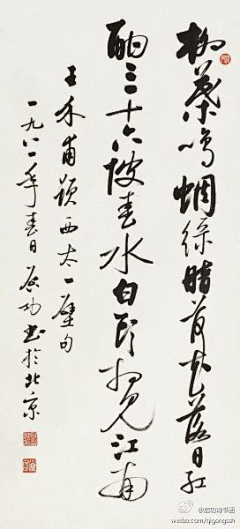 柳叶鸣蜩绿暗荷花落日红
酣三十六陂春水白头想见江南
王介甫题西太一壁句
一九八一年春日启功书于北京
@启功诗书画
weibo.com/qigongssh